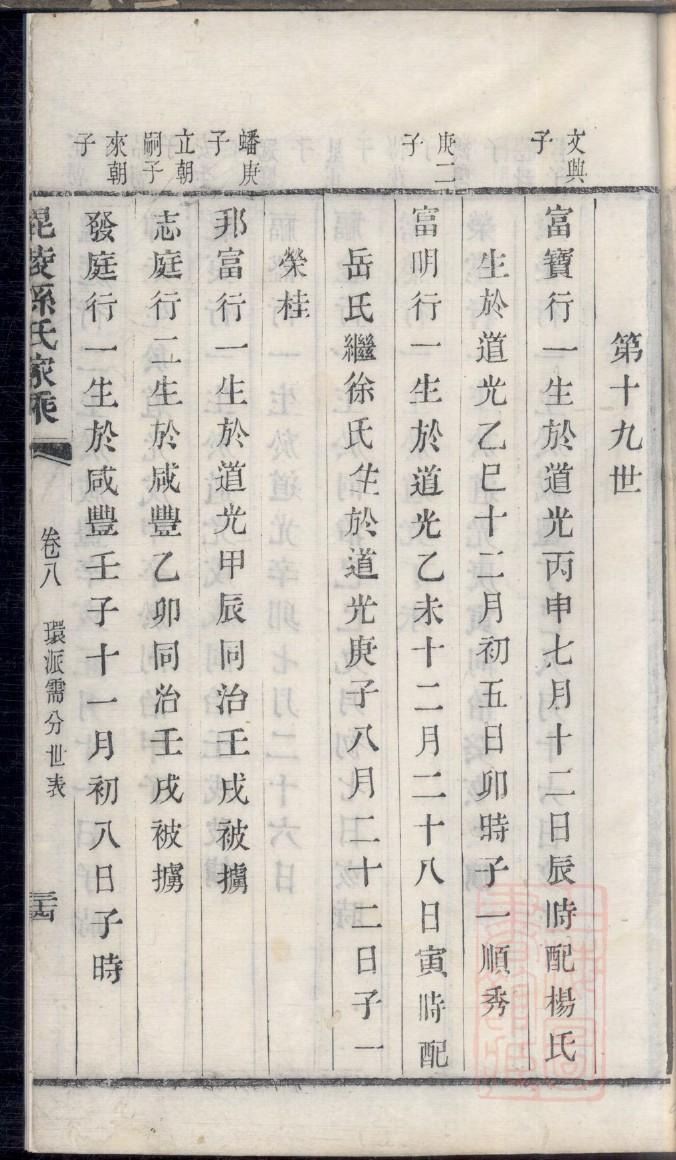 第十九世
文興子
富寶行一生於道光丙申七月十二日辰時配楊氏
生於道光乙巳十二月初五日卯時子一順秀
庚二子
富明行一生於道光乙未十二月二十八日寅時配
岳氏繼徐氏生於道光庚子八月二十二日子一
榮桂
蟠庚子
邦富行一生於道光甲辰同治壬戌被擄
立朝嗣子
志庭行二生於咸豐乙卯同治壬戌被擄
來朝子
發庭行一生於咸豐壬子十一月初八日子時
毘陵孫氏家乘
卷八 環派需分世表